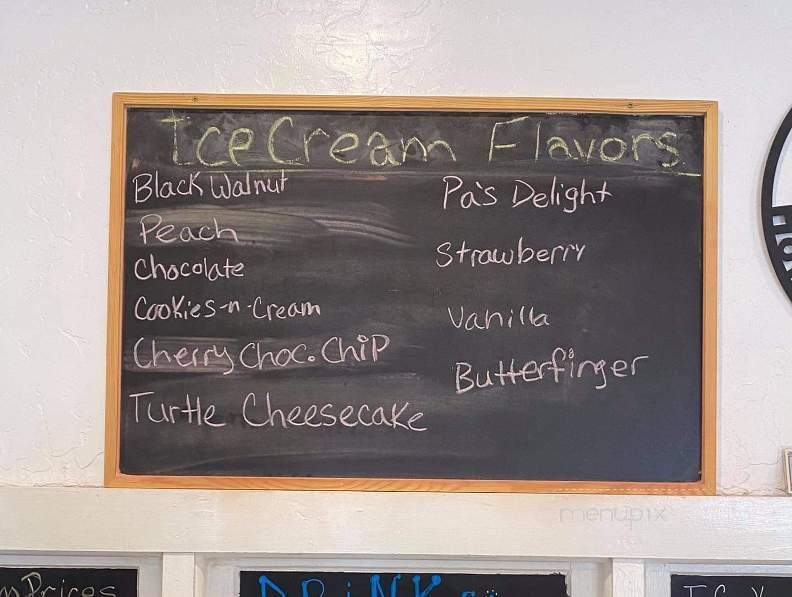 Ice Cream Flavors
Black Walnut
Peach
Chocolate
Cookies-n-Cream
Cherry Choc. Chip
Turtle Cheesecake
Pa's Delight
Strawberry
Vanilla
Butterfinger
menupix
Prices